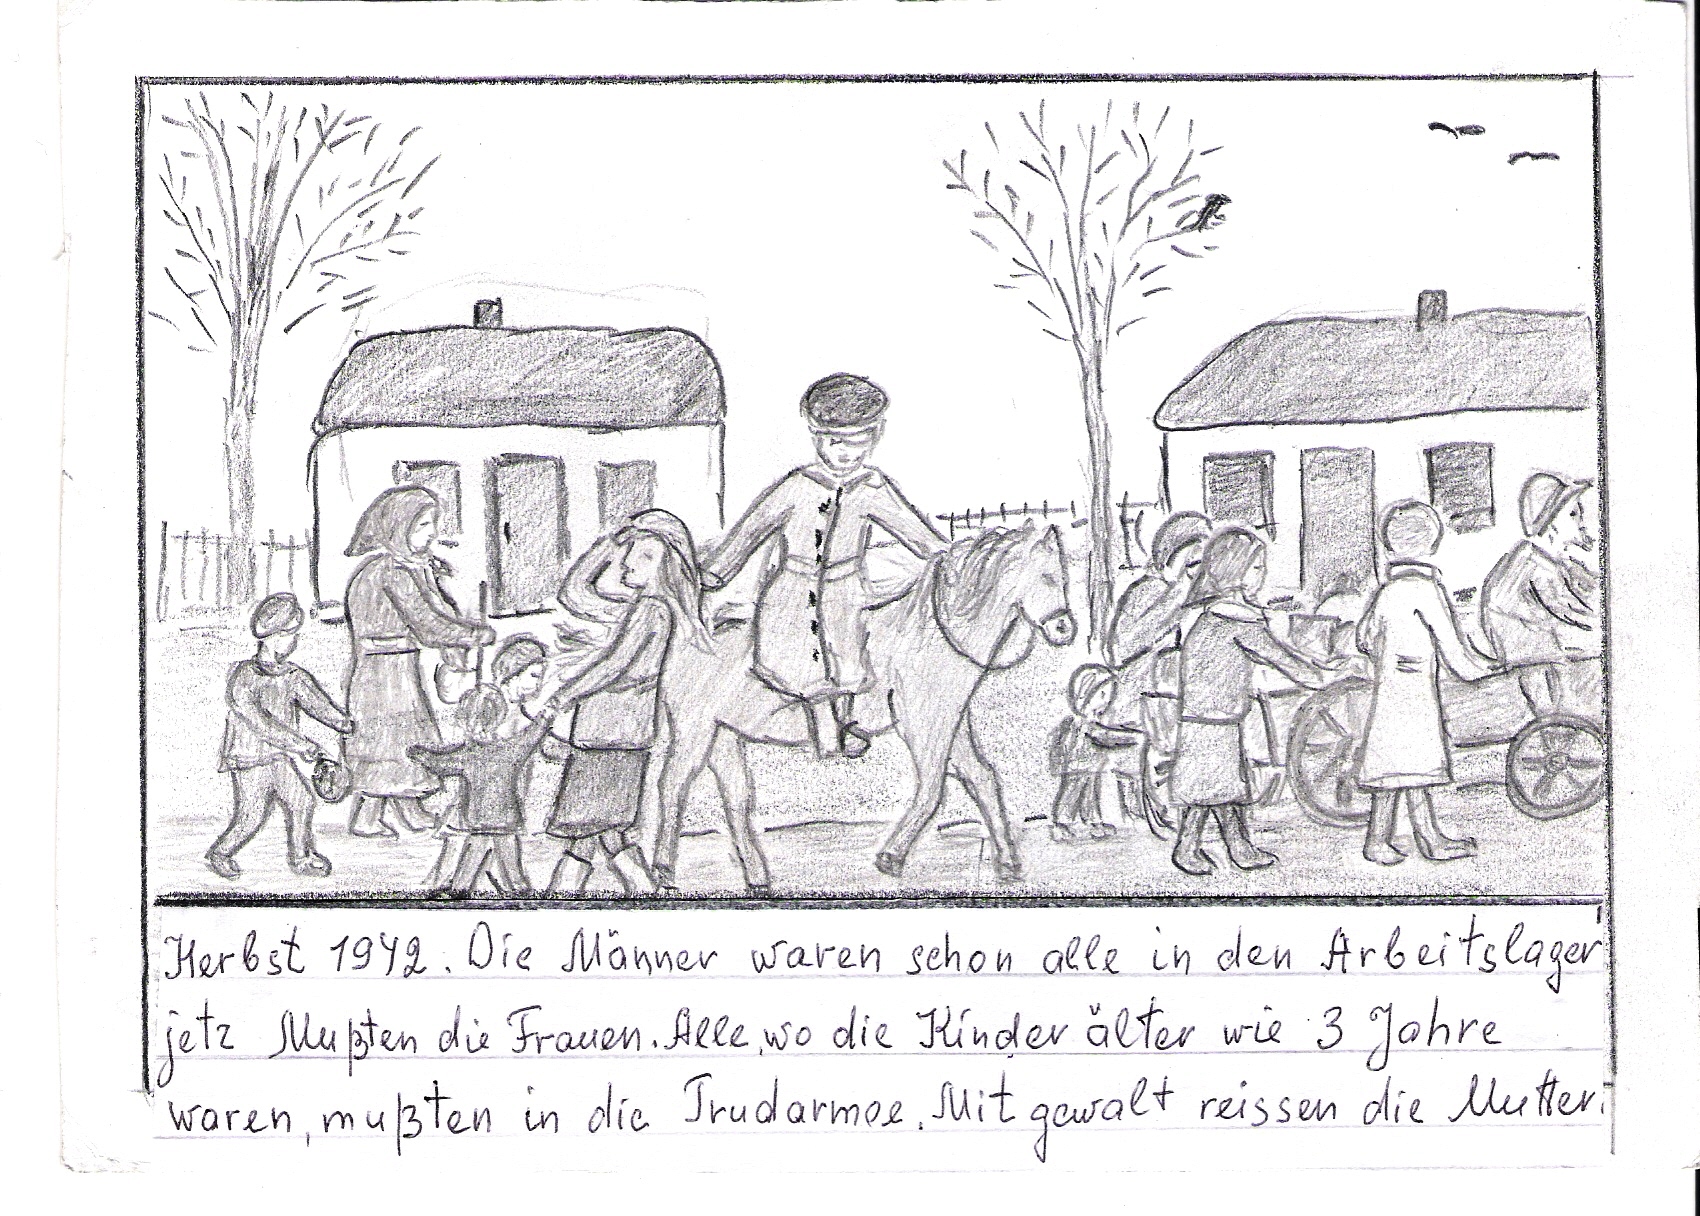 Herbst 1942. Die Männer waren schon alle in den Arbeitslager
jetz Mußten die Frauen. Alle, wo die Kinder älter wie 3 Jahre
waren, mußten in die Trudarmee. Mit gewalt reissen die Mutter.